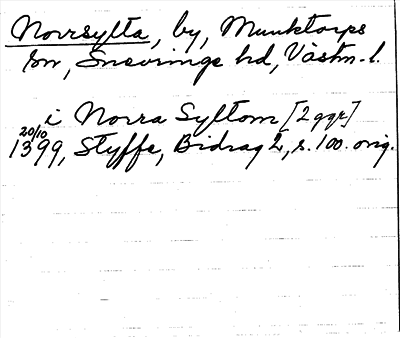 Norrsylta, by, Munktorps
sn, Snevringe hd, Västm. l.
i Norra Syltom [2 ggr]
20/10
1399, Styffe, Bidrag 2, s. 100. orig.